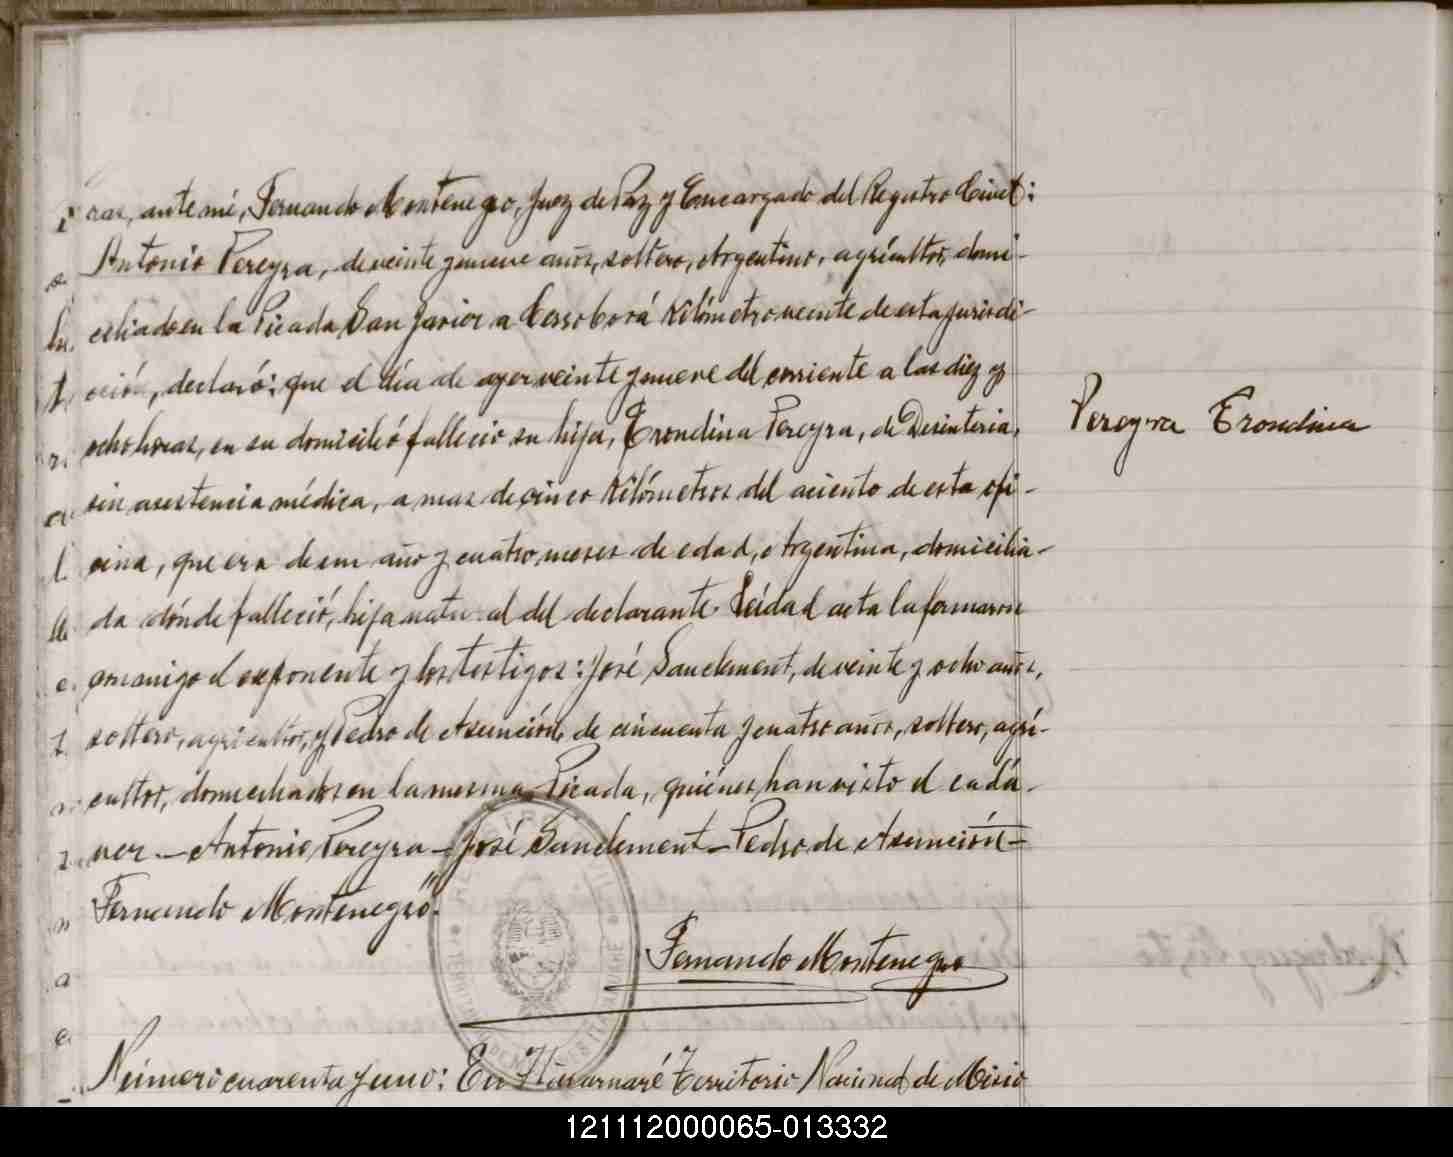 ras, ante mi, Fernando Montenegro, Juez de Paz y Encargado del Registro Civil:
Antonio Pereyra, de veinte y nueve años, soltero, Argentino, agricultor, domi-
ciliado en la Picada San Javier a Cerro Corá Kilómetro veinte de esta jurisdi-
ción, declaró: que el día de ayer veinte y nueve del corriente a las diez y
ocho horas, en su domicilió falleció su hija, Erondina Pereyra, de Desinteria,
Pereyra Erondina
sin asistencia médica, a mas de cinco Kilómetros del aciento de esta ofi-
cina, que era de un año y cuatro meses de edad, Argentina, domicilia-
da dónde falleció, hija natural del declarante. Leída el acta la firmaron
conmigo el exponente y los testigos: José Sanclement, de veinte y ocho años,
soltero, agricultor, y Pedro de Asunción, de cincuenta y cuatro años, soltero, agri-
cultor, domiciliados en la misma Picada, quiénes han visto el cadá-
ver.- Antonio Pereyra - José Sanclement - Pedro de Asunción -
Fernando Montenegro".
Fernando Montenegro
Número cuarenta y uno: En Territorio Nacional de Misio
121112000065-013332